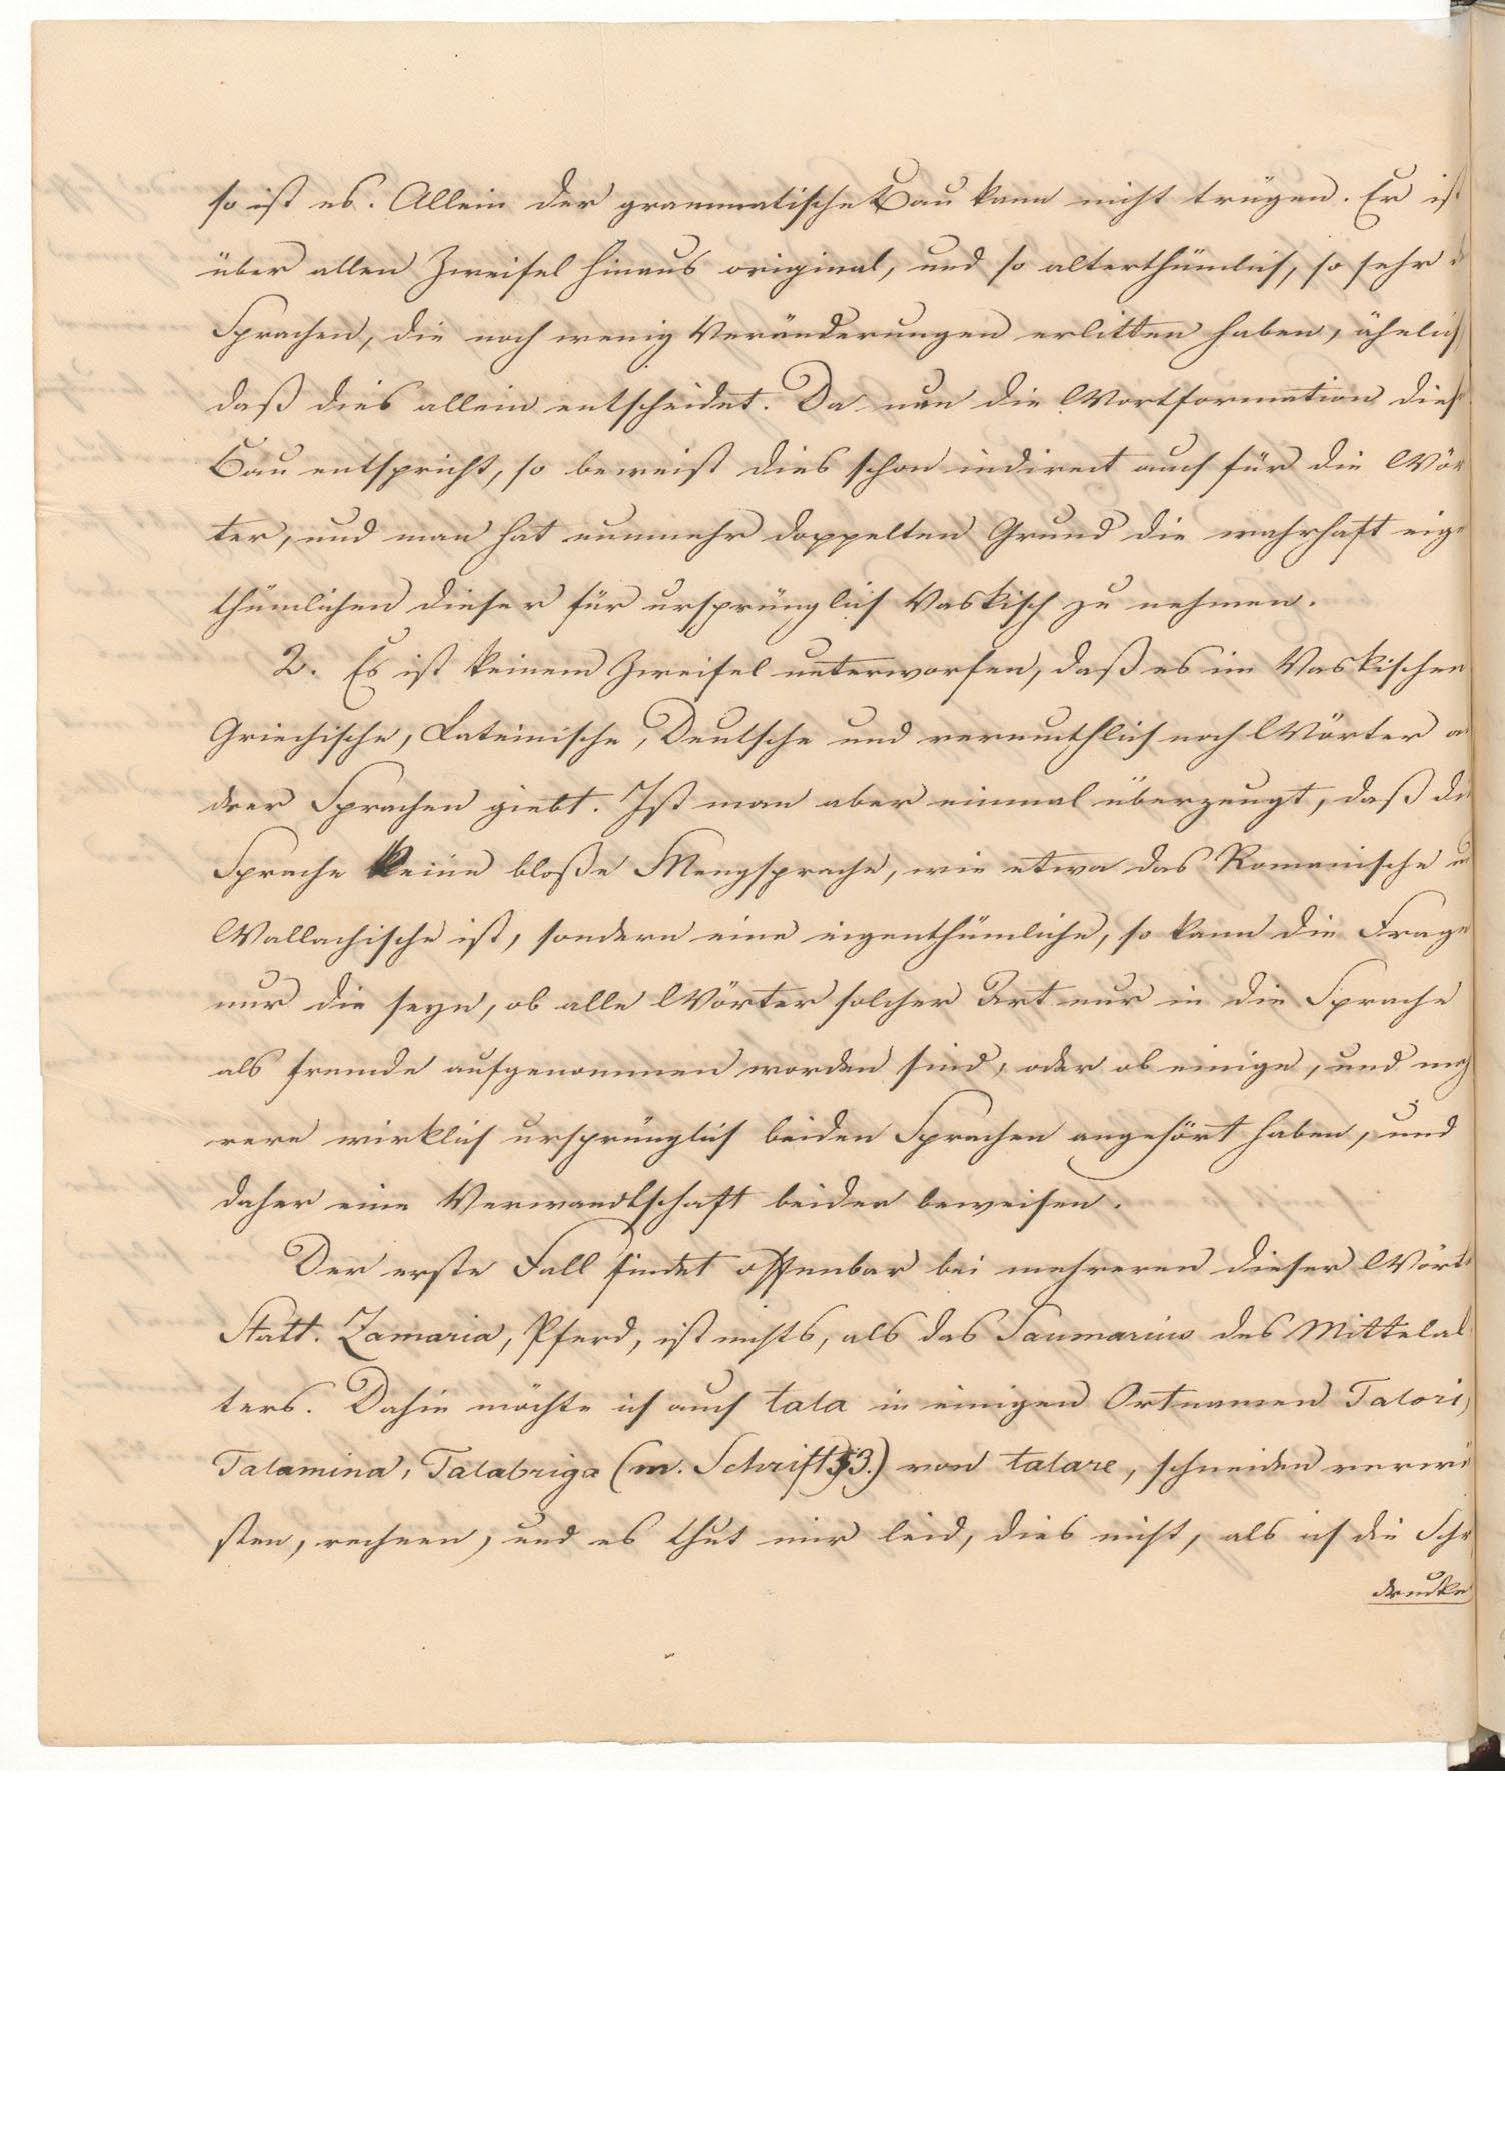 so ist es. Allein der grammatische Bau kann nicht trügen. Er ist
über allen Zweifel hinaus original, und so alterthümlich, so sehr d
Sprachen, die noch wenig Veränderungen erlitten haben, ähnlich
daß dies allein entscheidet. Da nun die Wortformation dies
Bau entspricht, so beweist dies schon indirect auch für die Wör
ter, und man hat nunmehr doppelten Grund die wahrhaft eige
thümlichen dieser für ursprünglich Vaskisch zu nehmen.
2. Es ist keinem Zweifel unterworfen, daß es im Vaskischen
Griechische, Lateinische, Deutsche und vermuthlich noch Wörter an
drer Sprachen giebt. Ist man aber einmal überzeugt, daß die
Sprache keine bloße Mengsprache, wie etwa das Romanische u
Wallachische ist, sondern eine eigenthümliche, so kann die Frage
nur die seyn, ob alle Wörter solcher Art nur in die Sprache
als fremde aufgenommen worden sind, oder ob einige, und meh
rere wirklich ursprünglich beiden Sprachen angehört haben, und
daher eine Verwandtschaft beider beweisen.
Der erste Fall findet offenbar bei mehreren dieser Wörte
Statt. Zamaria, Pferd, ist nichts, als das Saumarius des Mittelal
ters. Dahin möchte ich auch tala in einigen Ortnamen Talori,
Talamina, Talabriga (m. Schrift 53.) von talare, schneiden verwü
sten, rechnen, und es thut mir leid, dies nicht, als ich die Schr
drucke